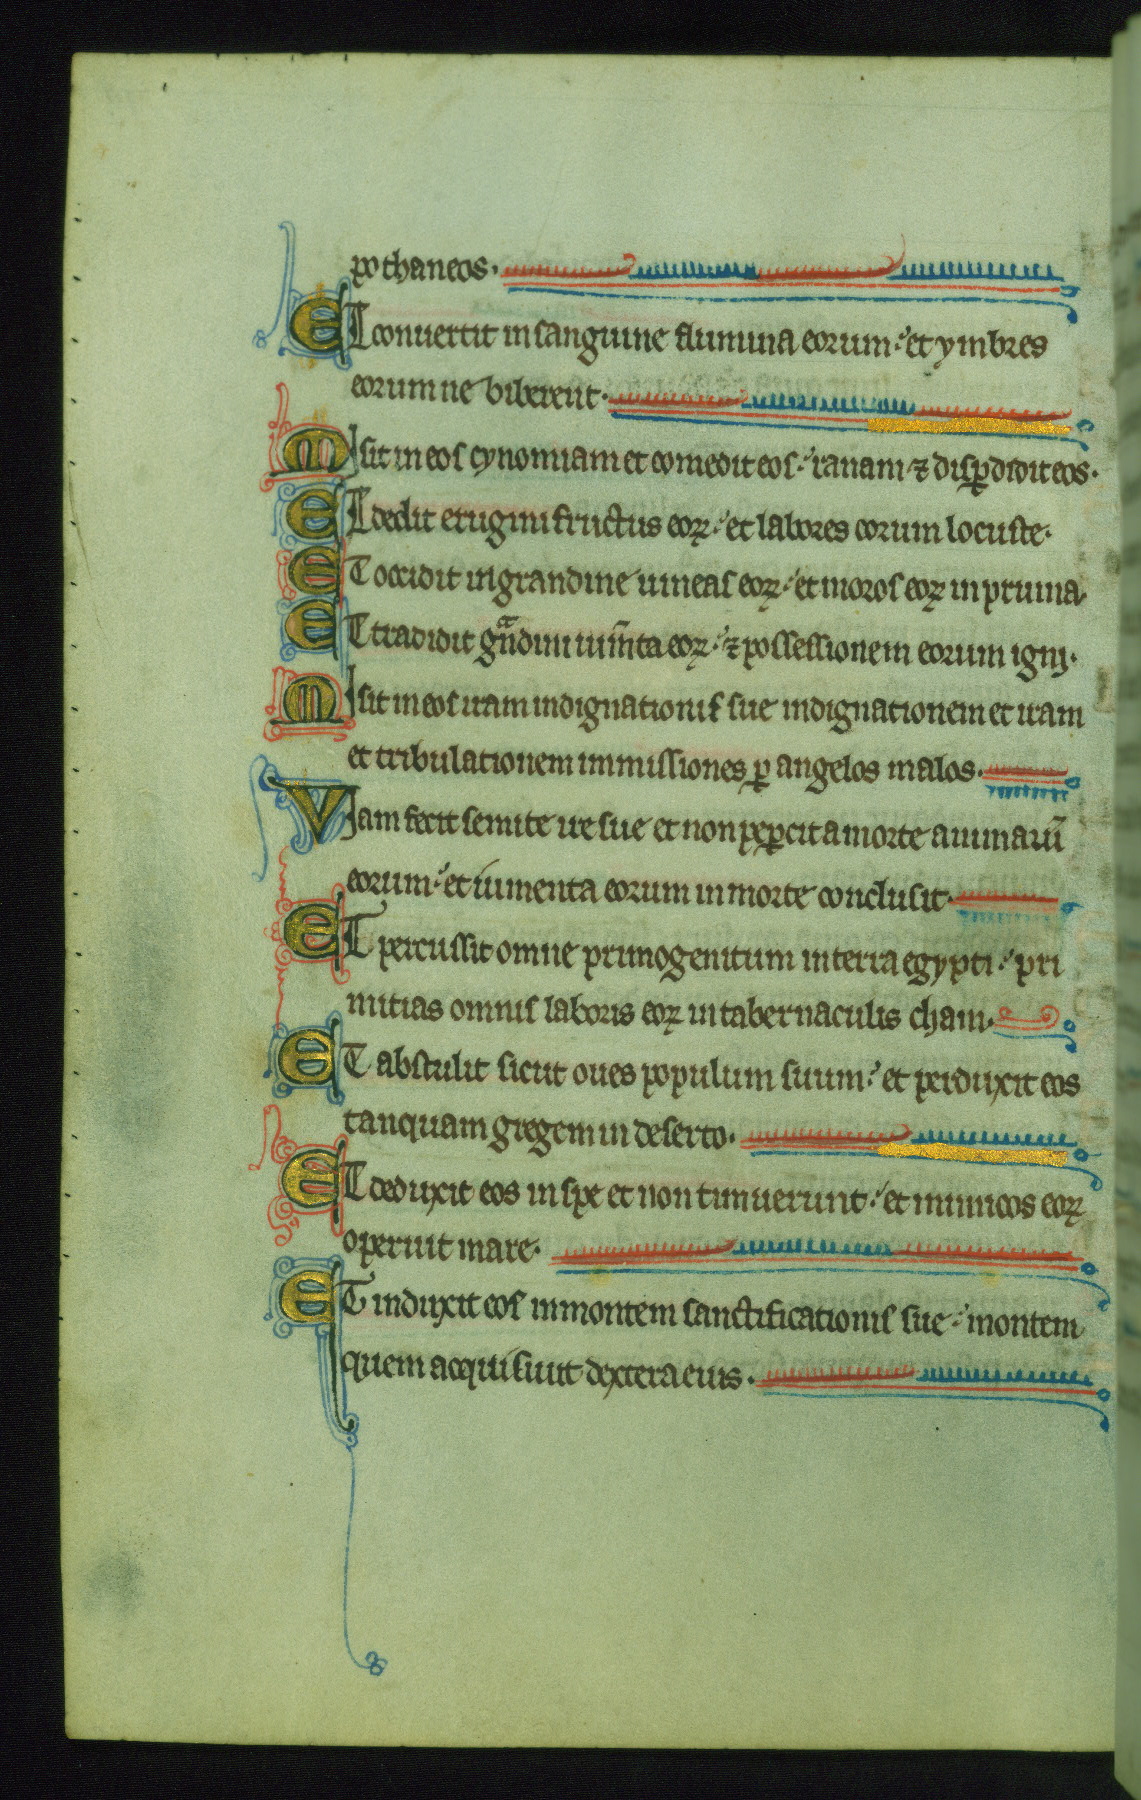 po thaneos.
ET conuertit in sanguine flumina eorum: et ymbres
eorum ne biberent.
MIsit in eos cynomiam et comedit eos: ranam ⁊ disꝑdidit eos.
ET dedit erugini fructus eoꝝ: et labores eorum locuste.
ET occidit in grandine uineas eoꝝ: et moros eoꝝ in pruina.
ET tradidit gᵃndini ium̄ta eoꝝ: ⁊ possessionem eorum igni.
MIsit in eos iram indignationis sue indignationem et iram
et tribulationem immissiones ꝑ angelos malos.
VIam fecit semite ire sue et non peꝑcit a morte animarū
eorum: et iumenta eorum in morte conclusit.
ET percussit omne primogenitum in terra egypti: pri
mitias omnis laboris eoꝝ in tabernaculis cham.
ET abstulit sicut oues populum suum: et perduxit eos
tanquam gregem in deserto.
ET deduxit eos in spe et non timuerunt: et inimicos eoꝝ
operuit mare.
ET induxit eos in montem sanctificationis sue: montem
quem acquisiuit dextera eius.